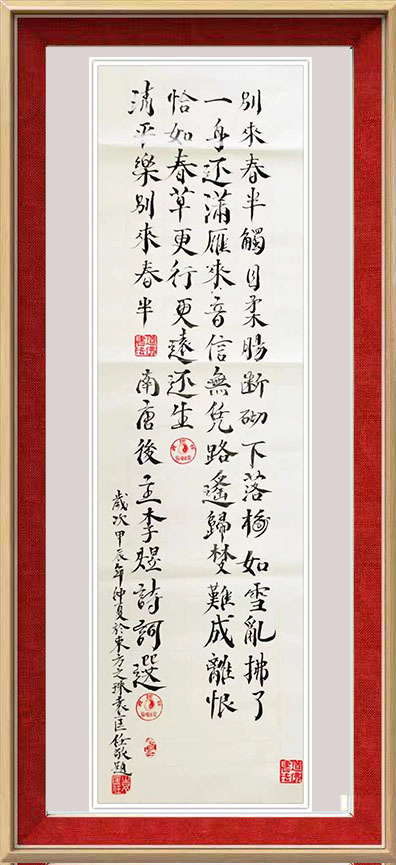 別來春半觸目柔腸斷砌下落梅如雪亂拂了
一身还滿雁來音信無凭路遙歸梦難成離恨
恰如春草更行更遠还生
清平樂別來春半 南唐後主李煜詩詞選
歲次甲辰年仲夏於東方之珠袁匡任敬題